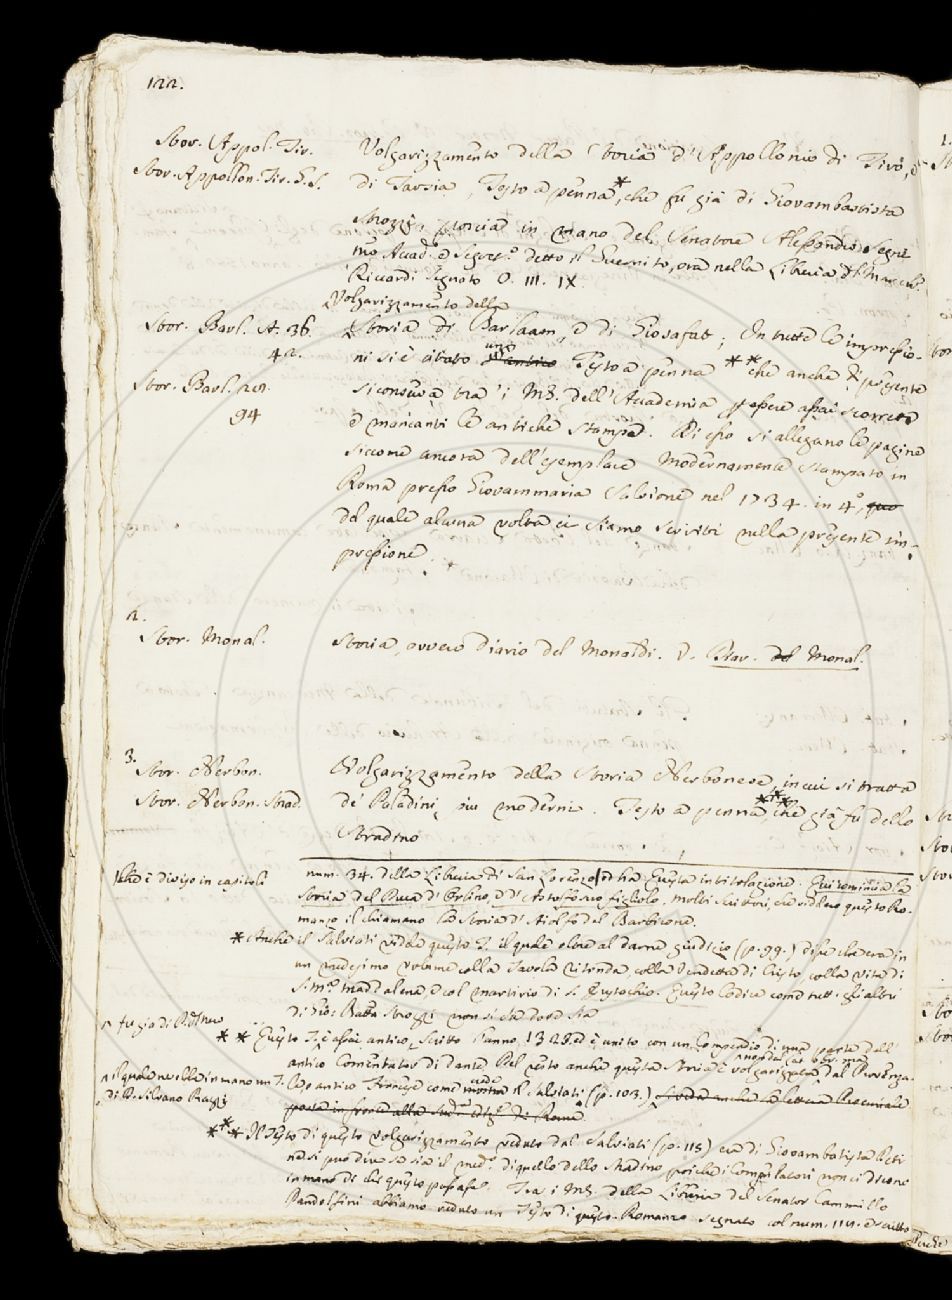 122.
Stor. Appol. Tir.
Stor. Appollon. Tir. G. S.
Volgarizzamento della Storia d'Appollonio di Tiro, e
di Tarsia, Testo a penna*, che fu già di Giovambatista
Strozzi, poscia in mano del Senatore Alessandro Segni
Accad. e Segret.º detto il Guernito, ora nella Libreria de' March.
Riccardi segnato O. III. IX.
Volgarizzamento della
Stor. Barl. A. 36.
42.
Storia di Barlaam, e di Giosafat; In tutte le impressio-
ni si è citato un antico Testo a penna ** che anche di presente
Stor. Barl. 94
si conserva tra' i MS. dell'Accademia p essere assai scorrette
e mancanti le antiche stampe. Di esso si allegano le pagine
siccome ancora dell'esemplare modernamente stampato in
Roma presso Giovammaria Salvioni nel 1734. in 4º,
del quale alcuna volta ci siamo serviti nella presente im-
pressione.
2.
Stor. Monal.
Storia, ovvero Diario del Monaldi. V. Diar. del Monal.
3.
Stor. Nerbon.
Stor. Nerbon. Strad.
Volgarizzamento della Storia Nerbonese, in cui si tratta
de' Paladini più moderni. Testo a penna, *** che già fu dello
Stradino
è diviso in capitoli
num. 34. della Libreria di San Lorenzo, ed ha questa intitolazione. Qui comincia la
Storia del Duca d'Orlino, e d'Astolfo suo figliolo. Molti Scrittori, che videro questo Ro-
manzo il chiamano la Storia d'Aiolfo del Barbicone.
* Anche il Salviati vide questo T. il quale oltre al darne giudicio (p. 99.) disse che era in
un medesimo volume colla Tavola ritonda, colla Vendetta di Cristo, colla vita di
S. Mª Maddalena, e col martirio di S. Eustochio. Questo Codice come tutt. gli altri
di Gio: Batta Strozzi non si sa dove sia
^ fu già di
* * Questo T. è assai antico, scritto l'anno 1323. ed è unito con un Compendio di una parte dell'
antico Comentator di Dante. Del resto anche questa Storia è volgarizzata dal Provenza-
^ il quale ne
di P. Silvano Razzi
le o antico Francese come vide il Salviati (p. 103.)
posta in fronte alla sud.ª ediz. di Roma
*** Il Testo di questo volgarizzamento veduto dal Salviati (p. 115) era di Giovambatista Deti
nè si può dire se sia il med.º di quello dello Stradino poichè i Compilatori non ci dicono
in mano di chi questo passasse. Tra i MS. della Libreria del Senator Cammillo
Pandolfini abbiamo veduto un Testo di questo Romanzo segnato col num. 114. e scritto